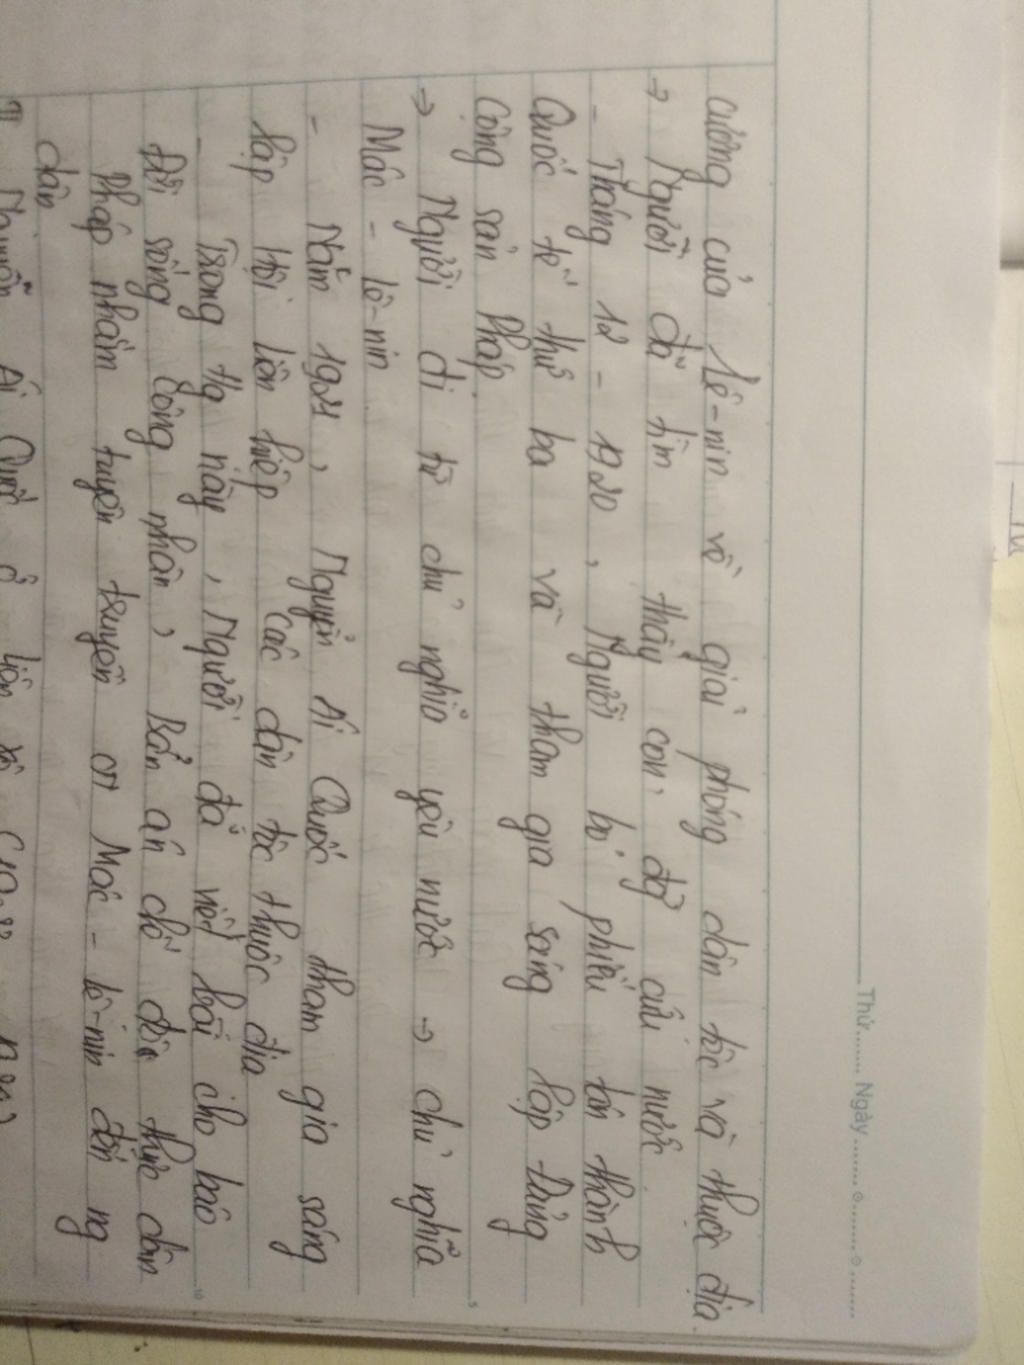 Thứ........ Ngày ............
cương của Lê-nin về giải phóng dân tộc và thuộc địa.
→ Người đã tìm thấy con đg cứu nước
- Tháng 12 - 1920, Người bỏ phiếu tán thành
Quốc tế thứ ba và tham gia sáng lập Đảng
Cộng sản Pháp
→ Người đi từ chủ nghĩa yêu nước → chủ nghĩa
Mác - Lê-nin
- Năm 1921, Nguyễn Ái Quốc tham gia sáng
lập Hội liên hiệp các dân tộc thuộc địa
- Trong tg này, Người đã viết bài cho báo
Đời sống công nhân, Bản án chế độ thực dân
Pháp nhằm tuyên truyền cn Mác - Lê-nin đến ng
dân
Nguyễn Ái Quốc ở Liên Xô